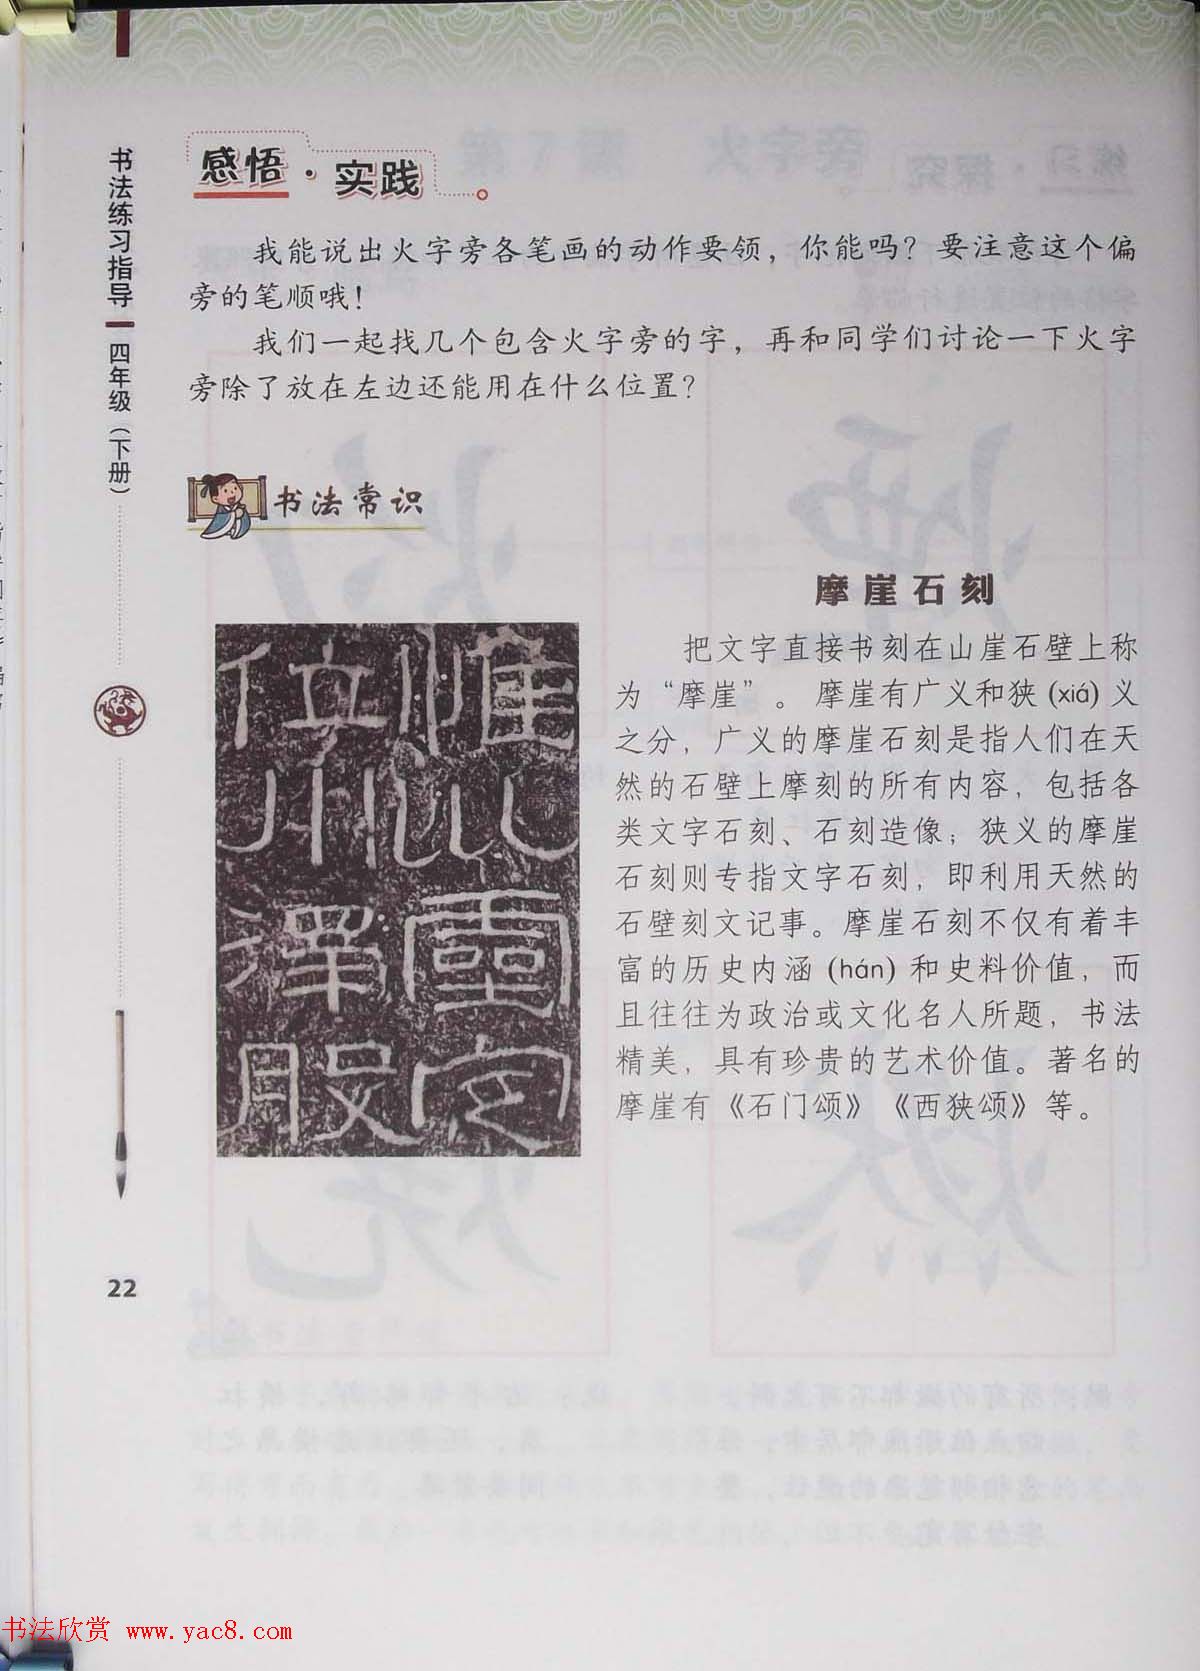 书法练习指导 四年级（下册）
感悟·实践
我能说出火字旁各笔画的动作要领，你能吗？要注意这个偏
旁的笔顺哦！
我们一起找几个包含火字旁的字，再和同学们讨论一下火字
旁除了放在左边还能用在什么位置？
书法常识
摩崖石刻
惟巛靈定
位川澤股
把文字直接书刻在山崖石壁上称
为“摩崖”。摩崖有广义和狭(xiá)义
之分，广义的摩崖石刻是指人们在天
然的石壁上摩刻的所有内容，包括各
类文字石刻、石刻造像；狭义的摩崖
石刻则专指文字石刻，即利用天然的
石壁刻文记事。摩崖石刻不仅有着丰
富的历史内涵(hán)和史料价值，而
且往往为政治或文化名人所题，书法
精美，具有珍贵的艺术价值。著名的
摩崖有《石门颂》《西狭颂》等。
22
书法欣赏 www.yac8.com